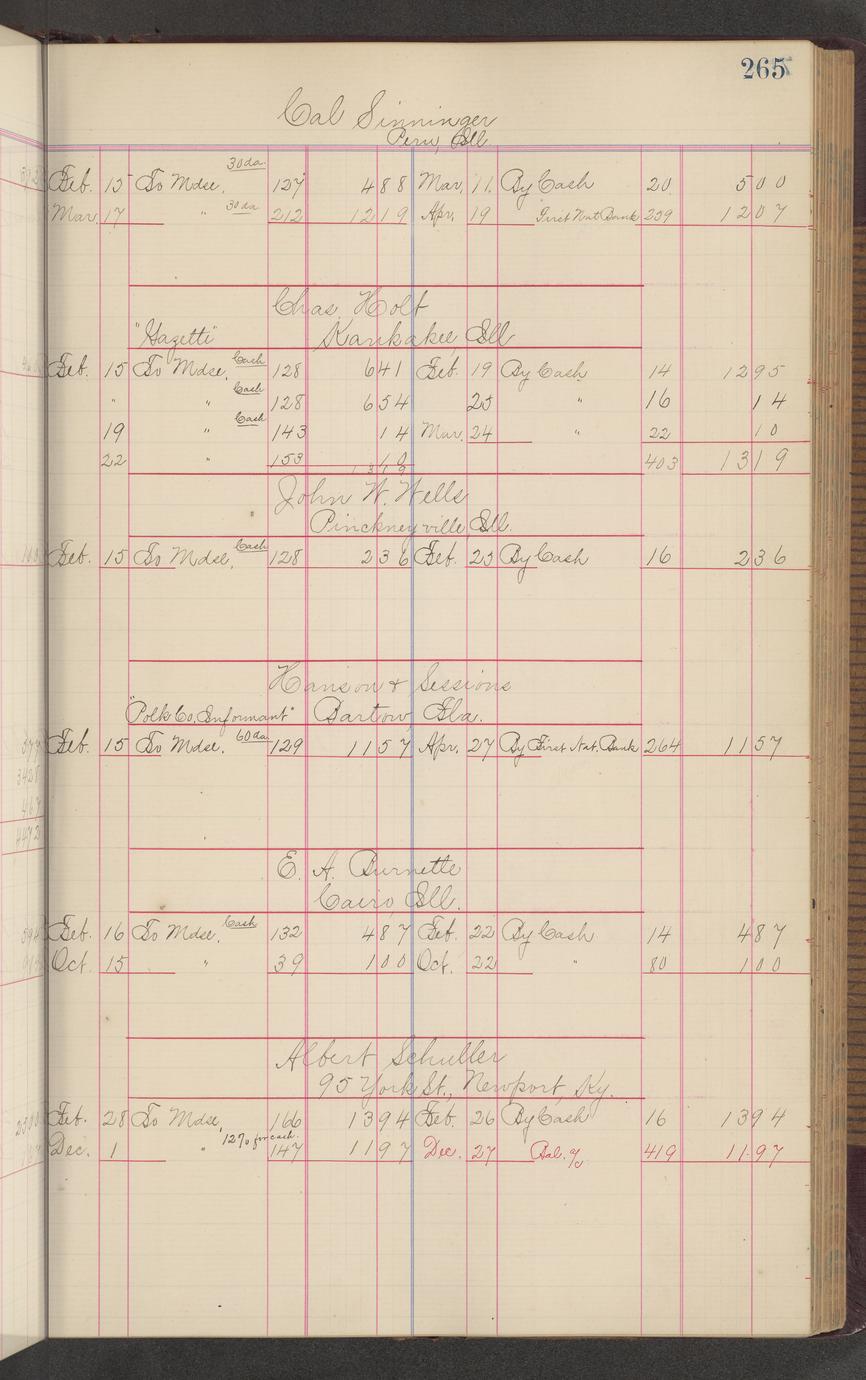 265
Cal Sinninger
Peru, Ill.
Feb. 15 To Mdse, 30 da. 127 4 88 Mar. 11. By Cash 20 5 00
Mar. 17 " 30 da 212 12 19 Apr. 19 First Nat Bank 259 12 07
Chas. Holt
"Gazette" Kankakee Ill
Feb. 15 To Mdse, Cash 128 6 41 Feb. 19 By Cash 14 12 95
" " Cash 128 6 54 25 " 16 14
19 " Cash 143 14 Mar. 24 " 22 10
22 " 153 10 403 13 19
13 19
John W. Wells
Pinckneyville, Ill.
Feb. 15 To Mdse, Cash 128 2 36 Feb. 25 By Cash 16 2 36
Hanson & Sessions
"Polk Co. Informant" Bartow, Fla.
Feb. 15 To Mdse. 60 da. 129 11 57 Apr. 27 By First Nat. Bank 264 11 57
E. A. Burnette
Cairo, Ill.
Feb. 16 To Mdse, Cash 132 4 87 Feb. 22 By Cash 14 4 87
Oct. 15 " 39 1 00 Oct. 22 " 80 1 00
Albert Schuller
95 York St., Newport, Ky.
Feb. 28 To Mdse, 166 13 94 Feb. 26 By Cash 16 13 94
Dec. 1 " 12% for cash. 147 11 97 Dec. 27 Bal. a/c 419 11.97